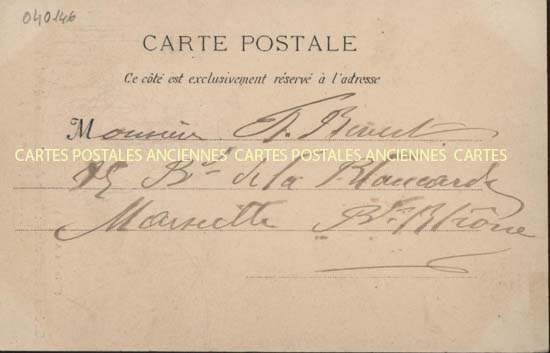 040146
CARTE POSTALE
Ce côté est exclusivement réservé à l'adresse
Monsieur
CARTES POSTALES ANCIENNES CARTES POSTALES ANCIENNES CARTES
Bd de la Blancarde
Marseille B. Rhône